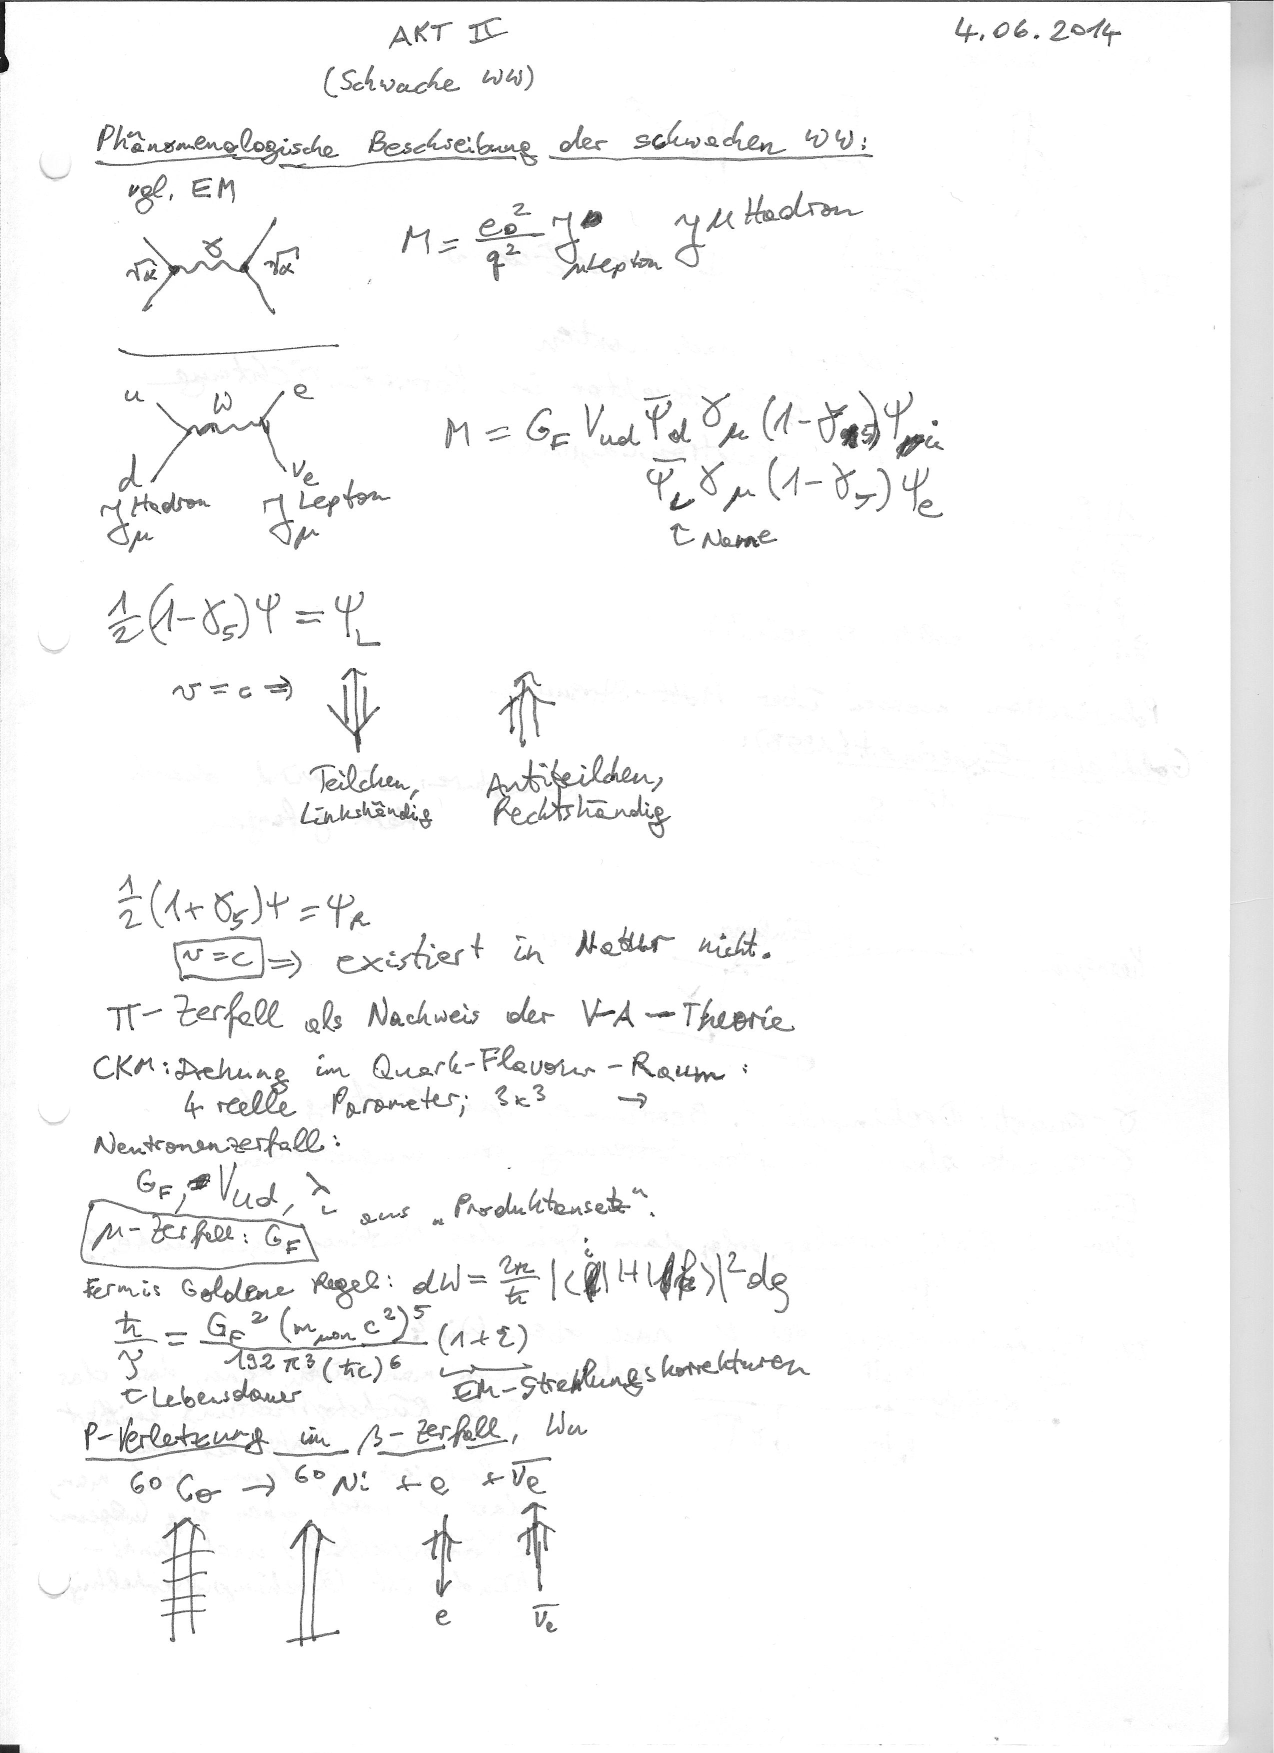 AKT II
4.06.2014
(Schwache WW)
Phänomenologische Beschreibung der schwachen WW:
vgl. EM
√α γ √α
M = e₀²/q² J μ Lepton J μ Hadron
u W e
d νe
J μ Hadron J μ Lepton
M = G_F V_ud Ψ̄_d γ_μ (1-γ_5) Ψ_u
Ψ̄_L γ_μ (1-γ_5) Ψ_e
↑ Name
1/2 (1-γ_5) Ψ = Ψ_L
v = c ⇒
Teilchen, Antiteilchen,
Linkshändig Rechtshändig
1/2 (1+γ_5) Ψ = Ψ_R
v = c ⇒ existiert in Natur nicht.
π-Zerfall als Nachweis der V-A-Theorie
CKM: Drehung im Quark-Flavour-Raum:
4 reelle Parameter; 3x3 →
Neutronenzerfall:
G_F, V_ud, λ aus "Produktansatz".
μ-Zerfall: G_F
Fermis Goldene Regel: dW = 2π/ħ |<i|H|f>|² dρ
ħ/τ = G_F² (m_muon c²)⁵ / 192 π³ (ħc)⁶ (1+ε)
↑ Lebensdauer EM-Strahlungskorrekturen
P-Verletzung im β-Zerfall, Wu
⁶⁰Co → ⁶⁰Ni + e + ν̄e
e ν̄e